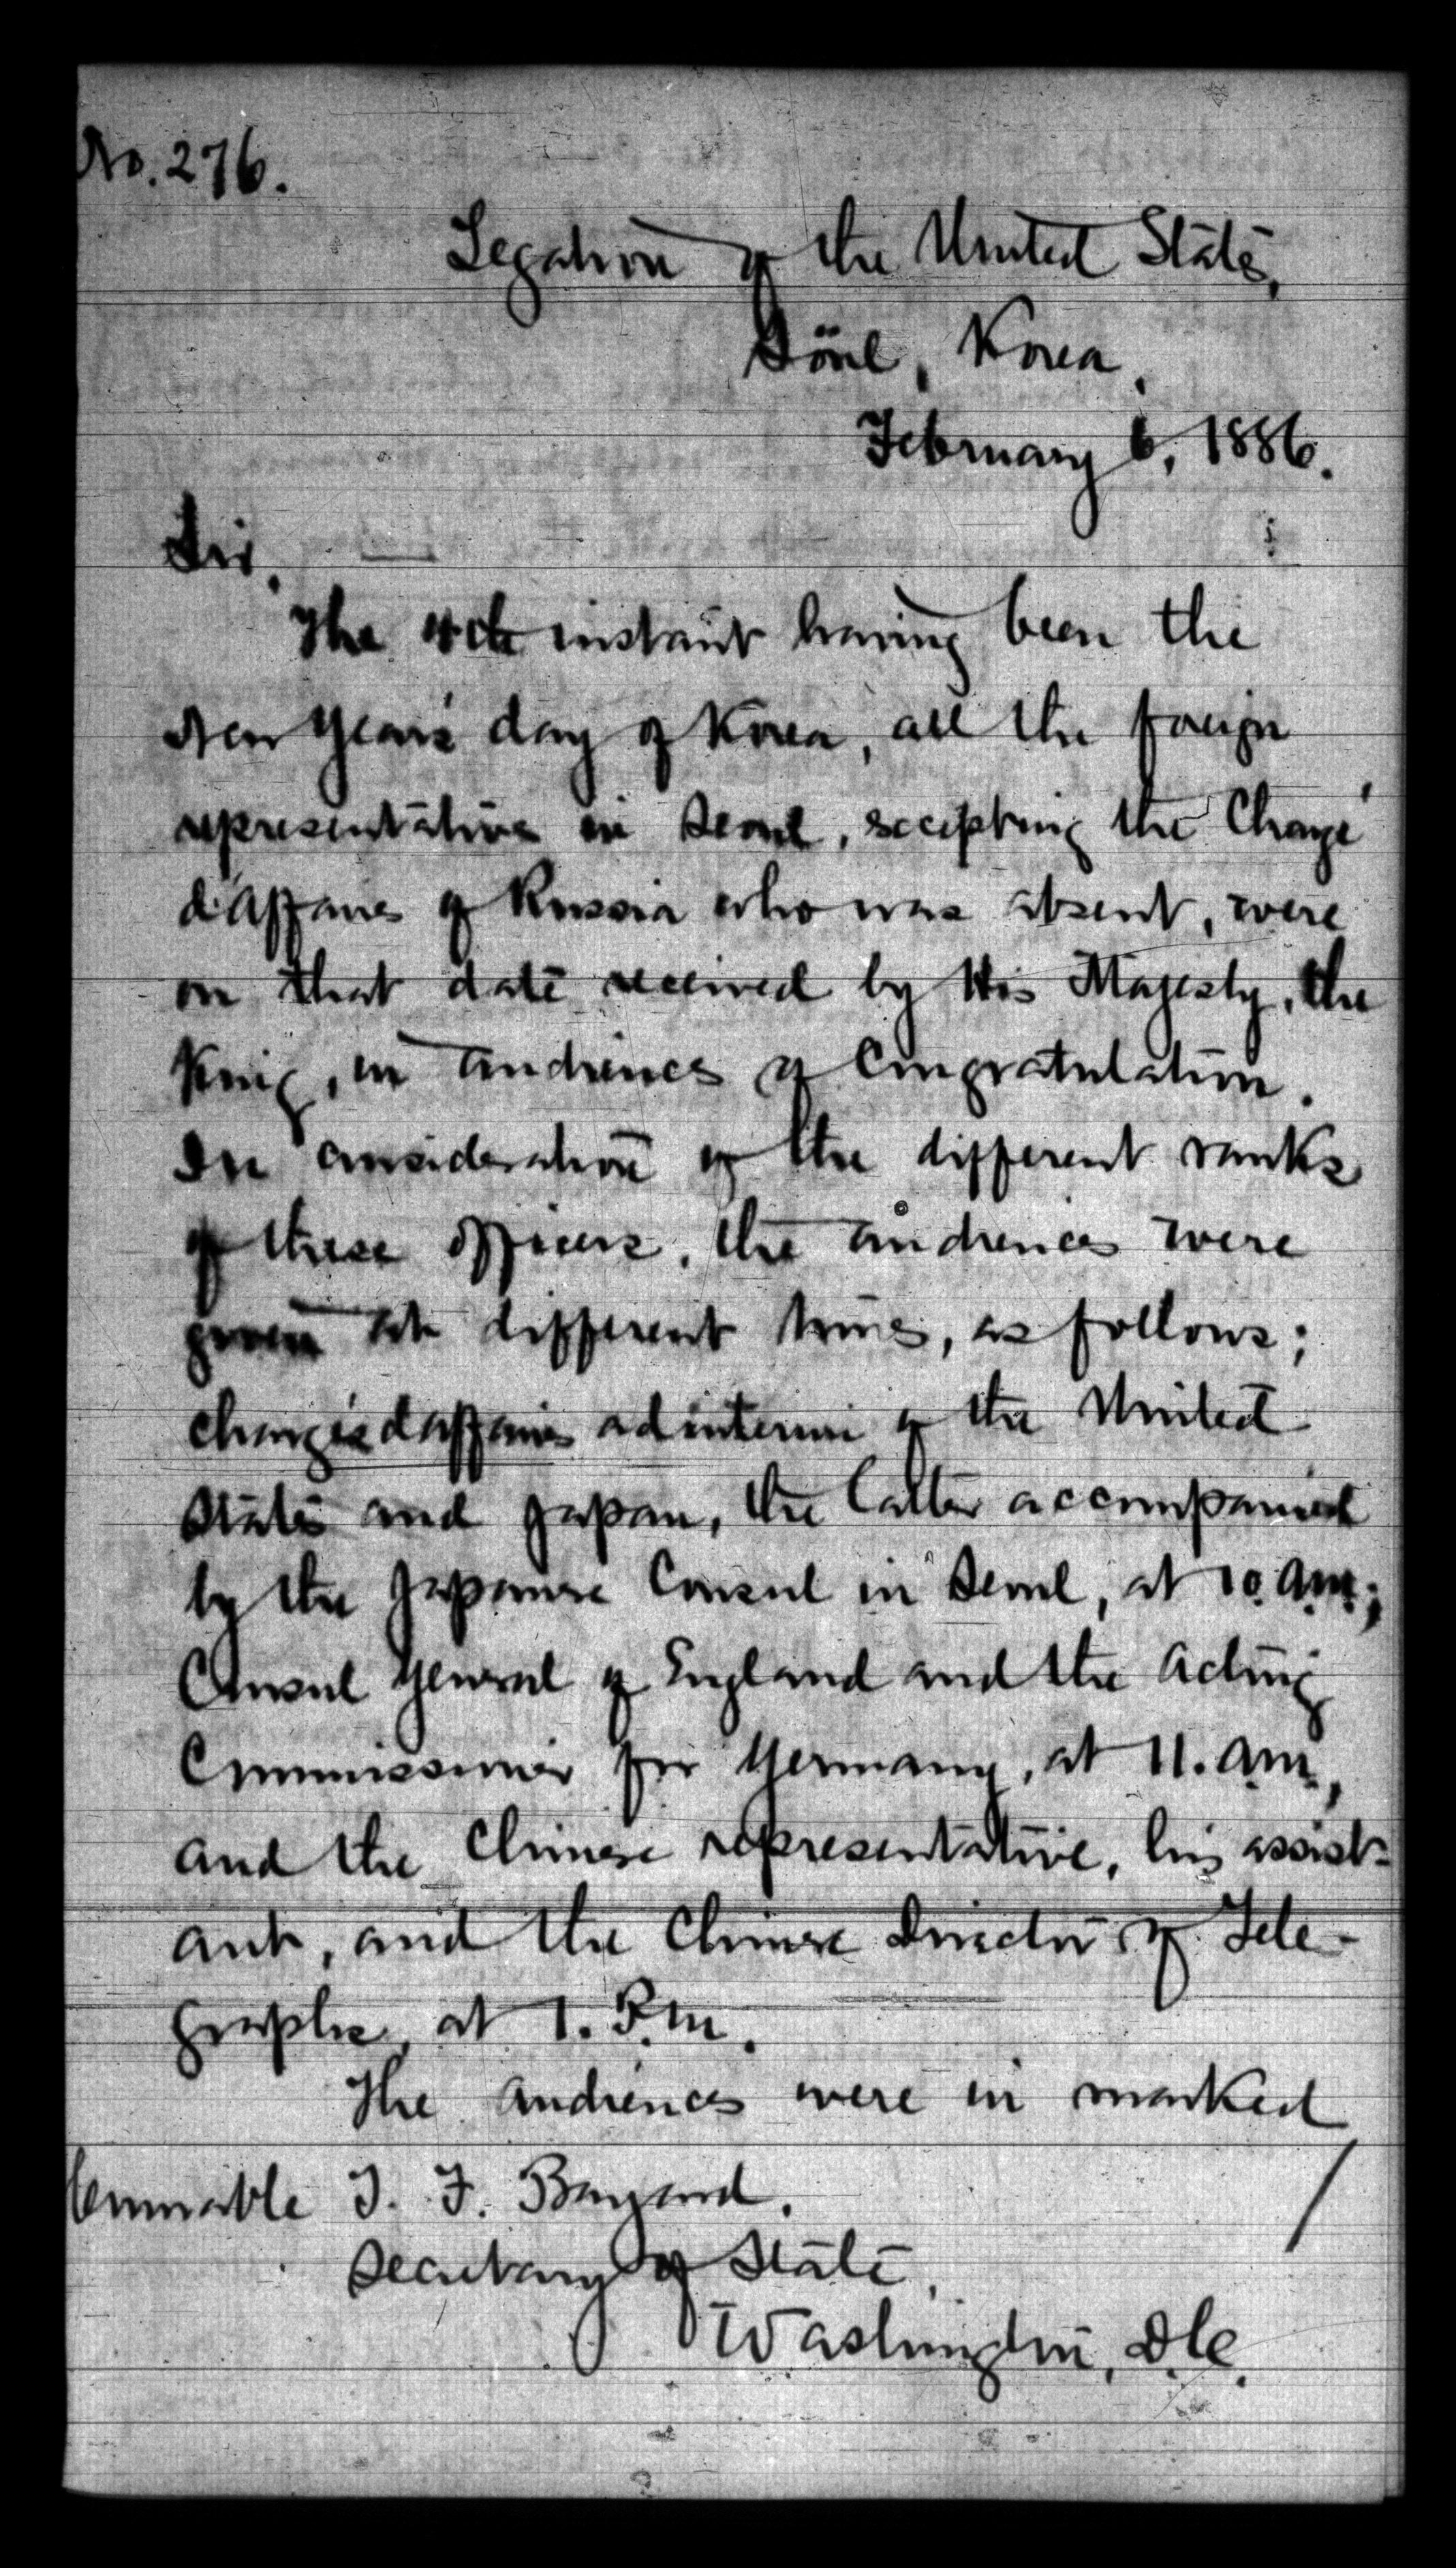 No. 276.
Legation of the United States,
Söul, Korea,
February 6, 1886.
Sir,
The 4th instant having been the
New Year's day of Korea, all the foreign
representatives in Seoul, excepting the Chargé
d'affaires of Russia who was absent, were
on that date received by His Majesty, the
King, in audiences of Congratulation.
In consideration of the different ranks
of these officers, the audiences were
given at different times, as follows;
chargés d'affaires ad interim of the United
States and Japan, the latter accompanied
by the Japanese Consul in Seoul, at 10. A.M.;
Consul General of England and the Acting
Commissioner for Germany, at 11. A.M.,
and the Chinese representative, his assist-
ant, and the Chinese Director of Tele-
graphs, at 1. P.M.
The audiences were in marked
T. F. Bayard,
Secretary of State,
Washington, D.C.